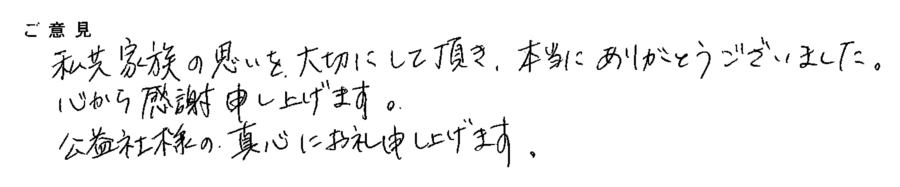 ご意見
私共家族の思いを、大切にして頂き、本当にありがとうございました。
心から感謝申し上げます。
公益社様の、真心にお礼申し上げます。